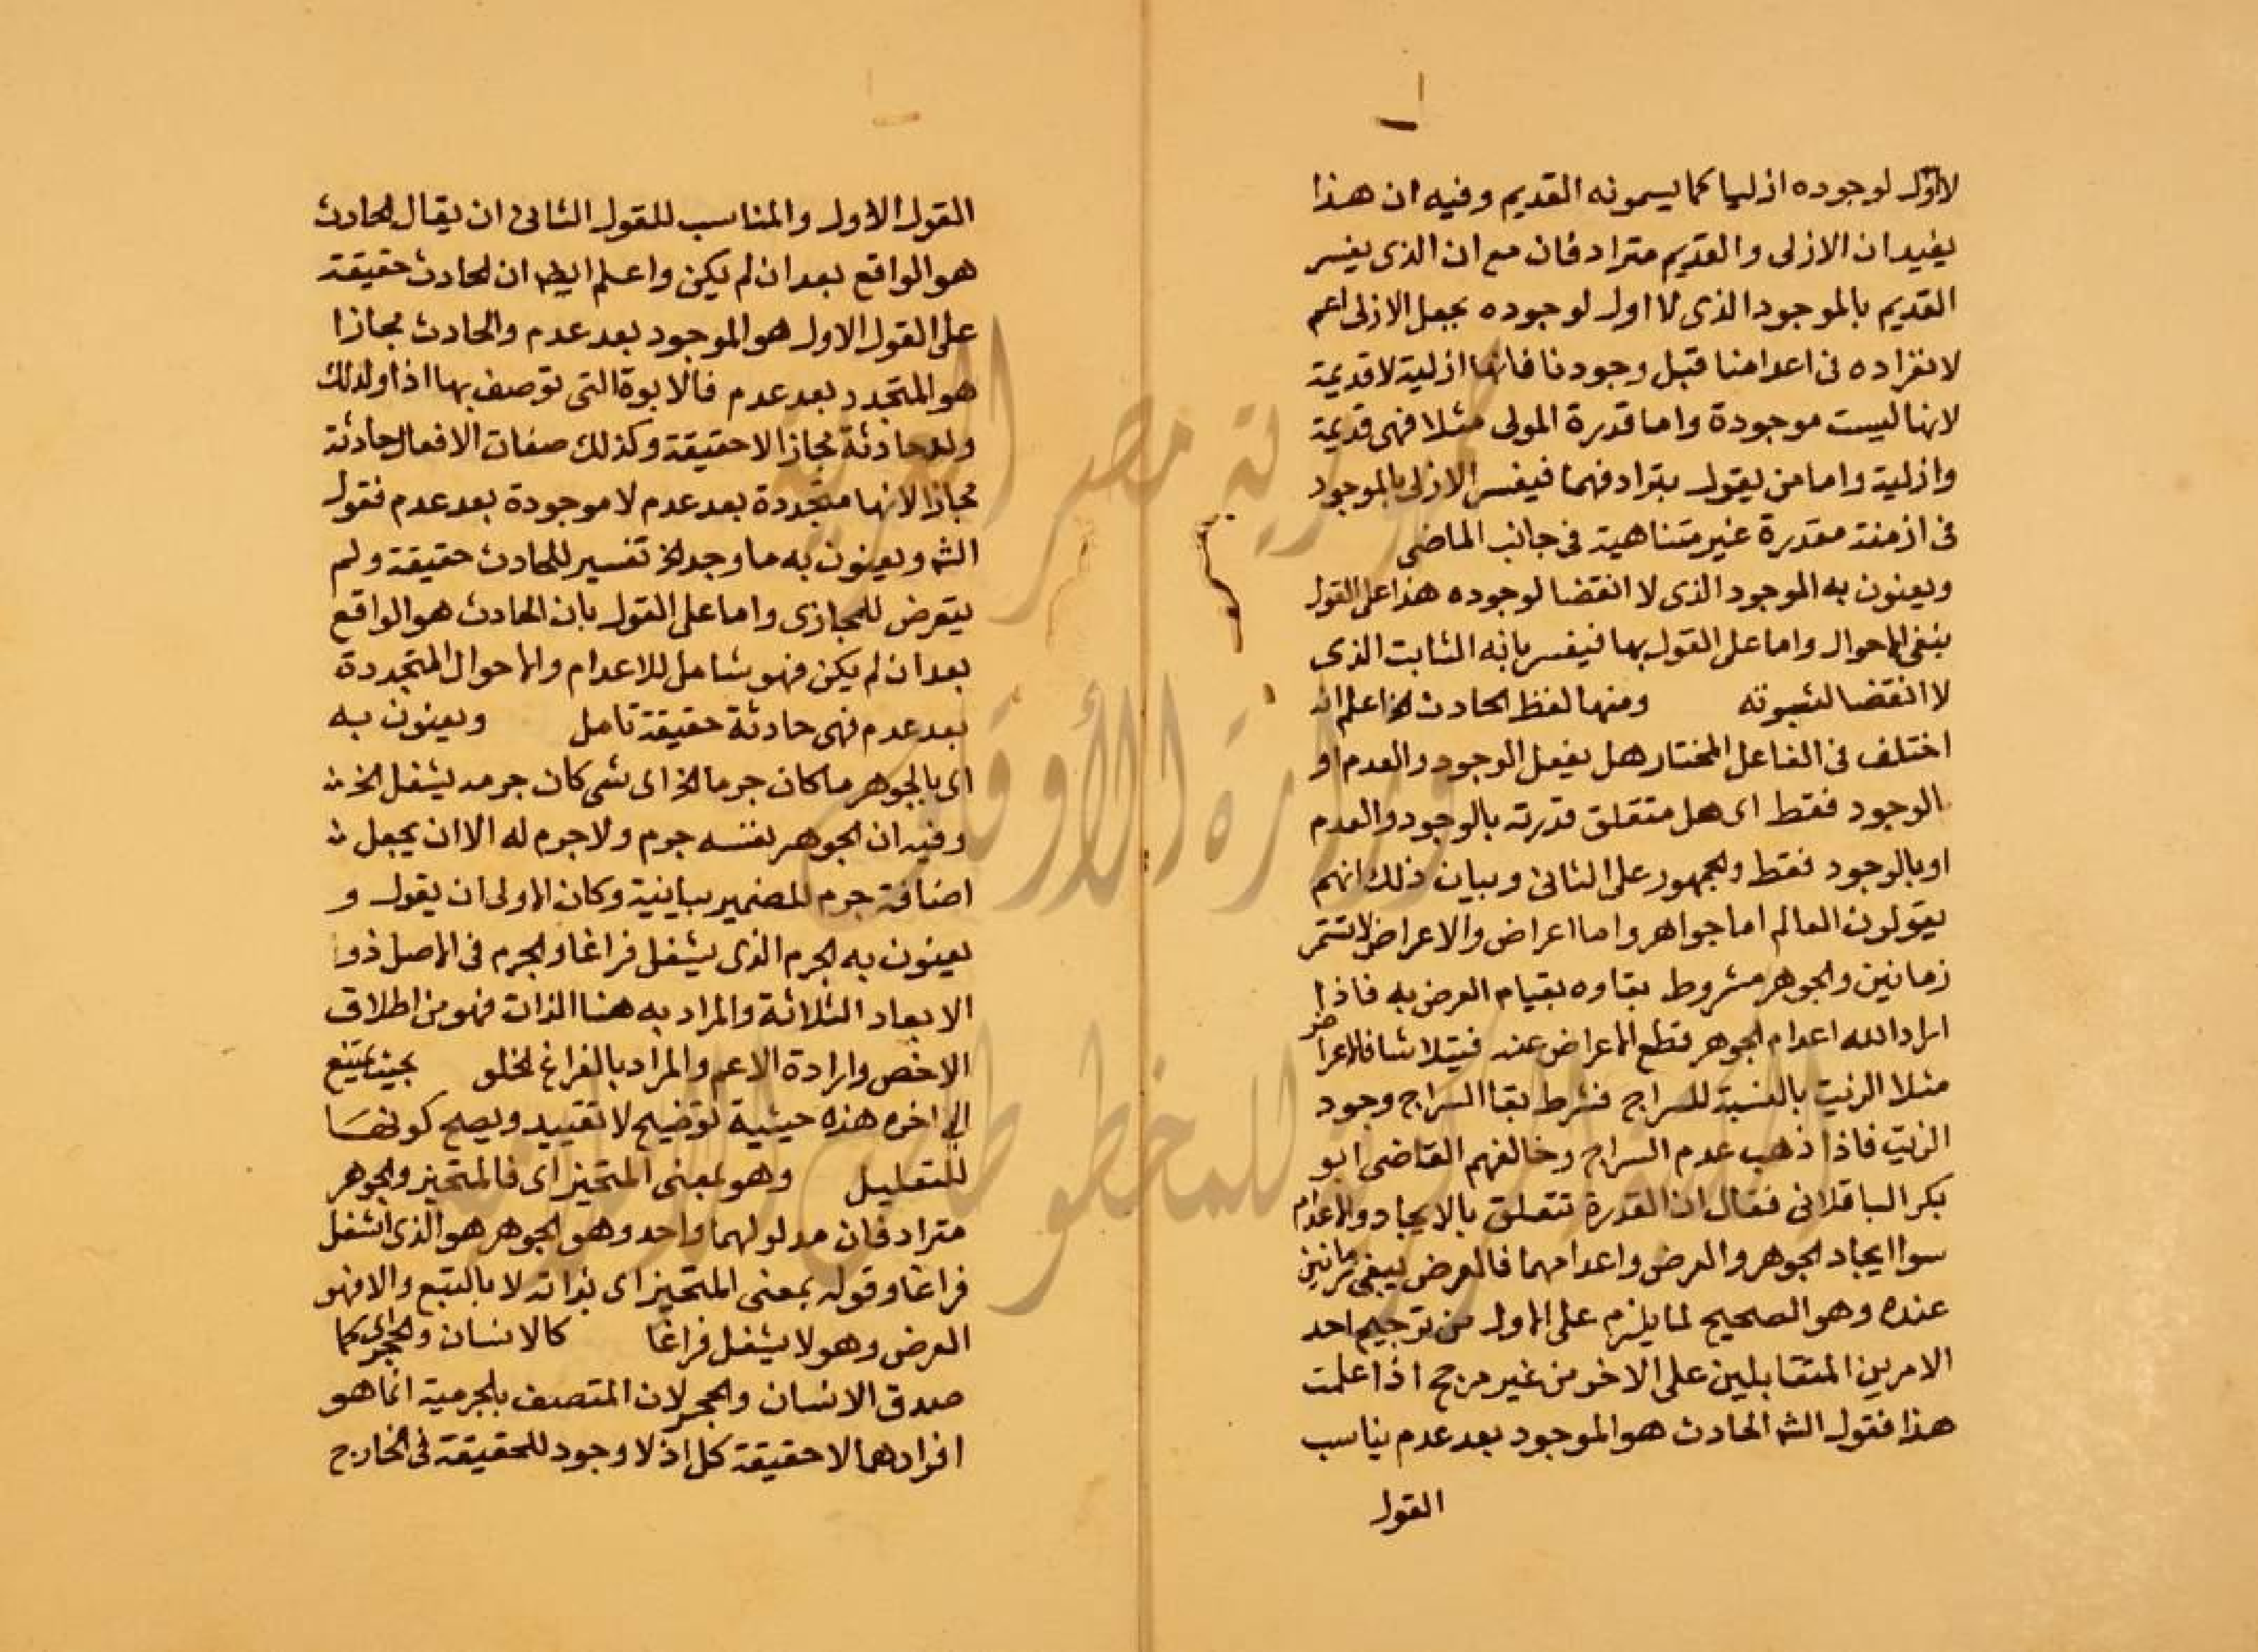 لا اول لوجوده ازليا كما يسمونه القديم وفيه ان هذا
يفيد ان الازلى والقديم مترادفان مع ان الذى يفسر
القديم بالموجود الذى لا اول لوجوده يجعل الازلى اعم
لانفراده فى اعدامنا قبل وجودنا فانها ازلية لا قديمة
لانها ليست موجودة واما قدرة المولى مثلا فهى قديمة
وازلية واما من يقول بترادفهما فيفسر الازلى بالموجود
فى ازمنة مقدرة غير متناهية فى جانب الماضى
ويعنون به الموجود الذى لا انقضا لوجوده هذا على القول
بنفى الاحوال واما على القول بها فيفسر بانه الثابت الذى
لا انقضا لثبوته ومنها لفظ الحادث الخ اعلم انه
اختلف فى الفاعل المختار هل يفعل الوجود والعدم او
الوجود فقط اى هل متعلق قدرته بالوجود والعدم
او بالوجود فقط والجمهور على الثانى وبيان ذلك انهم
يقولون العالم اما جواهر واما اعراض والاعراض لا تستمر
زمانين والجوهر مشروط بقاوه بقيام العرض به فاذا
اراد الله اعدام الجوهر قطع الاعراض عنه فيتلاشا فالاعراض
مثلا الزيت بالنسبة للسراج فشرط بقا السراج وجود
الزيت فاذا ذهب عدم السراج وخالفهم القاضى ابو
بكر الباقلانى فقال ان القدرة تتعلق بالايجاد والاعدام
سوا ايجاد الجوهر والعرض واعدامهما فالعرض يبقى زمانين
عنده وهو الصحيح لما يلزم على الاول من ترجيح احد
الامرين المتقابلين على الاخر من غير مرجح اذا علمت
هذا فقول الشـ الحادث هو الموجود بعد عدم يناسب
القول
القول الاول والمناسب للقول الثانى ان يقال الحادث
هو الواقع بعد ان لم يكن واعلم ايضا ان الحادث حقيقة
على القول الاول هو الموجود بعد عدم والحادث مجازا
هو المتجدد بعد عدم فالابوة التى توصف بها اذا ولد لك
ولد حادثة مجازا لا حقيقة وكذلك صفات الافعال حادثة
مجازا لانها متجددة بعد عدم لا موجودة بعد عدم فقول
الشـ ويعنون به ما وجد الخ تفسير للحادث حقيقة ولم
يتعرض للمجازى واما على القول بان الحادث هو الواقع
بعد ان لم يكن فهو شامل للاعدام والاحوال المتجددة
بعد عدم فهى حادثة حقيقة تامل ويعنون به
اى بالجوهر ما كان جرما الخ اى شى كان جرمه يشغل الخ
وفيه ان الجوهر نفسه جرم ولا جرم له الا ان يجعل
اضافة جرم للضمير بيانية وكان الاولى ان يقول و
يعنون به الجرم الذى يشغل فراغا والجرم فى الاصل ذو
الابعاد الثلاثة والمراد به هنا الذات فهو من اطلاق
الاخص وارادة الاعم والمراد بالفراغ الخلو بحيث يمتنع
الى اخره هذه حيثية توضيح لا تقييد ويصح كونها
للتعليل وهو بمعنى المتحيز اى فالمتحيز والجوهر
مترادفان مدلولهما واحد وهو الجوهر هو الذى اشغل
فراغا وقوله بمعنى المتحيز اى بذاته لا بالتبع والا فهو
العرض وهو لا يشغل فراغا كالانسان والحجر اى كما
صدق الانسان والحجر لان المتصف بالجرمية انما هو
افرادهما لا حقيقة كل اذ لا وجود للحقيقة فى الخارج